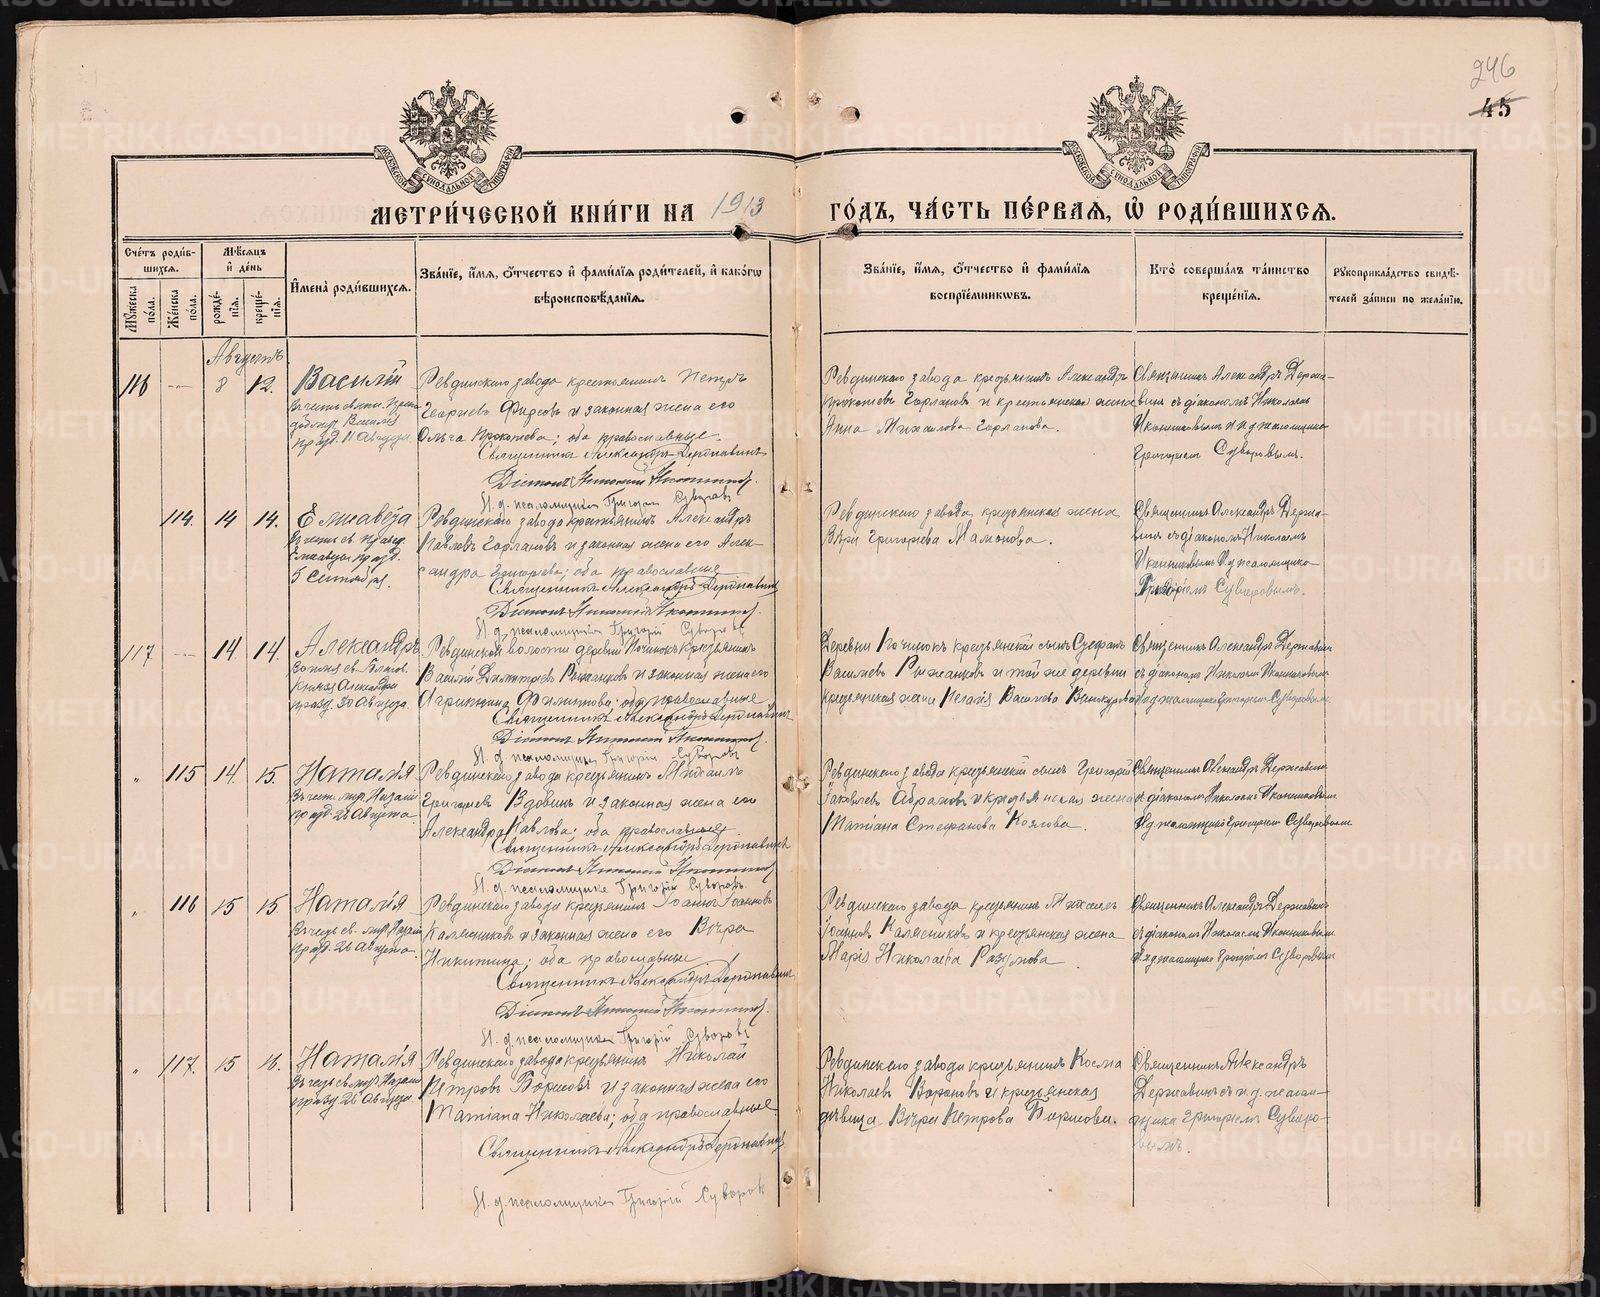 246
45
МЕТРИ́ЧЕСКОЙ КНИ́ГИ НА 1913 ГО́ДЪ, ЧА́СТЬ ПЕ́РВАЯ, Ѡ҆ РОДИ́ВШИХСЯ.
Сче́тъ роди́в-
шихся.
Мꙋ́жеска по́ла.
Же́нска по́ла.
Мѣ́сяцъ
и҆ де́нь
рожде́-
нїя.
креще́-
нїя.
И҆мена̀ роди́вшихся.
Зва́нїе, и҆́мя, ѻ҆́тчество и҆ фами́лїя роди́телей, и҆ како́гѡ
вѣроисповѣ́данїя.
Зва́нїе, и҆́мя, ѻ҆́тчество и҆ фами́лїя
воспрїе́мниковъ.
Кто̀ соверша́лъ та́инство
креще́нїя.
Рꙋкоприкла́дство свидѣ́-
телей за́писи по жела́нїю.
Августъ
116 — 8 12. Василій
празд. 11 Августа
Ревдинскаго завода крестьянинъ Петръ
Георгіевъ Фирсовъ и законная жена его
Ольга Прокопьева; оба православные.
Священникъ Александръ Державинъ
Діаконъ Николай Иконниковъ.
И. д. псаломщика Григорій Суворовъ
Ревдинскаго завода крестьянинъ Александръ
Прокопьевъ Горлановъ и крестьянская жена
Анна Михаилова Горланова.
Священникъ Александръ Держа-
винъ съ діакономъ Николаемъ
Иконниковымъ и и. д. псаломщика
Григоріемъ Суворовымъ.
114. 14 14. Елисавета
Въ честь св. правед.
Елисаветы празд.
5 Сентября.
Ревдинскаго завода крестьянинъ Александръ
Павловъ Горлановъ и законная жена его Алек-
сандра Григорьева; оба православные
Священникъ Александръ Державинъ
Діаконъ Николай Иконниковъ.
И. д. псаломщика Григорій Суворовъ
Ревдинскаго завода крестьянская жена
Вѣра Григорьева Мамонова.
Священникъ Александръ Держа-
винъ съ діакономъ Николаемъ
Иконниковымъ и. д. псаломщика
Григоріемъ Суворовымъ.
117 — 14 14. Александръ
Князя Александра
празд. 30 Августа
Ревдинской волости деревни Починокъ крестьянинъ
Василій Димитріевъ и законная жена его
Агрипина Филиппова; оба православные
Священникъ Александръ Державинъ
Діаконъ Николай Иконниковъ.
И. д. псаломщика Григорій Суворовъ
Деревни Починокъ крестьянскій сынъ Стефанъ
Васильевъ и той же деревни
крестьянская жена Пелагія Васильева
Священникъ Александръ Державинъ
съ діакономъ Николаемъ Иконниковымъ
и. д. псаломщика Григоріемъ Суворовымъ
„ 115 14. 15. Наталія
Въ честь муч. Наталіи
празд. 26 Августа.
Ревдинскаго завода крестьянинъ Михаилъ
Григорьевъ Вдовинъ и законная жена его
Александра Павлова; оба православные.
Священникъ Александръ Державинъ
Діаконъ Николай Иконниковъ
И. д. псаломщика Григорій Суворовъ.
Ревдинскаго завода крестьянскій сынъ Григорій
Іаковлевъ и крестьянская жена
Татіана Стефанова Козлова.
Священникъ Александръ Державинъ
съ діакономъ Николаемъ Иконниковымъ
и. д. псаломщика Григоріемъ Суворовымъ
„ 116 15 15. Наталія
Въ честь св. муч. Наталіи
празд. 26 Августа.
Ревдинскаго завода крестьянинъ Іоаннъ Іоанновъ
Калясниковъ и законная жена его Вѣра
Никитина; оба православные.
Священникъ Александръ Державинъ
Діаконъ Николай Иконниковъ.
И. д. псаломщика Григорій Суворовъ
Ревдинскаго завода крестьянинъ Михаилъ
Іоанновъ Калясниковъ и крестьянская жена
Марія Николаева Разумова
Священникъ Александръ Державинъ
съ діакономъ Николаемъ Иконниковымъ
и. д. псаломщика Григоріемъ Суворовымъ
„ 117. 15 16. Наталія
Въ честь св. муч. Наталіи
празд. 26 Августа.
Ревдинскаго завода крестьянинъ Николай
Петровъ Борисовъ и законная жена его
Татіана Николаева; оба православные
Священникъ Александръ Державинъ
И. д. псаломщика Григорій Суворовъ
Ревдинскаго завода крестьянинъ Косма
Николаевъ Вороновъ и крестьянская
дѣвица Вѣра Петрова Борисова.
Священникъ Александръ
Державинъ съ и. д. псалом-
щика Григоріемъ Суворо-
вымъ.
METRIKI.GASO-URAL.RU